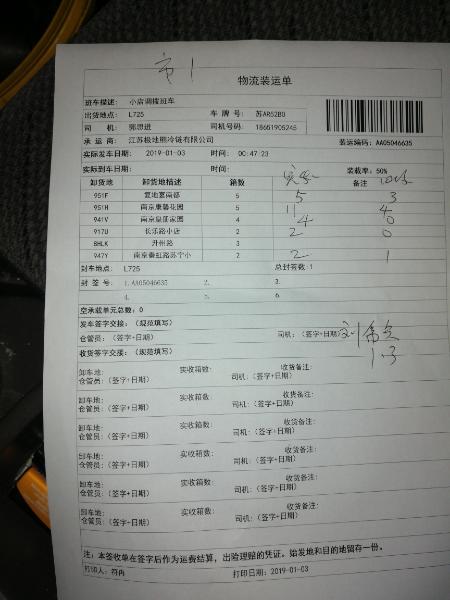 市1
物流装运单
班车描述: 小店调拨班车
出货地点: L725 车 牌 号: 苏AR52B0
司 机: 郭思进 司机号码: 18651905245
承 运 商: 江苏极地熊冷链有限公司 装运编码: AA05046635
实际发车日期: 2019-01-03 时间: 00:47:23
实际到车日期: 时间: 装载率: 50%
卸货地 卸货地描述 箱数 备注
951F 复地宴南都 5 5 3
951H 南京康馨花园 5 11 4
941V 南京皇册家园 4 4 0
917U 长乐路小店 2 2 0
8HLK 升州路 3
947Y 南京秦虹路苏宁小 2 2 1
封车地点: L725 总封签数:1
封 签 号: 1.AA05046635 2. 3.
4. 5. 6.
空承载单元总数: 0
发车签字交接: (规范填写)
仓管员: (签字+日期) 司机: (签字+日期)
1.3
收货签字交接: (规范填写)
卸车地: 实收箱数: 收货备注:
仓管员: (签字+日期) 司机: (签字+日期)
卸车地 实收箱数: 收货备注:
仓管员: (签字+日期) 司机: (签字+日期)
卸车地: 实收箱数: 收货备注:
仓管员: (签字+日期) 司机: (签字+日期)
卸车地: 实收箱数: 收货备注:
仓管员: (签字+日期) 司机: (签字+日期)
卸车地: 实收箱数: 收货备注:
仓管员: (签字+日期) 司机: (签字+日期)
卸车地: 实收箱数: 收货备注:
仓管员: (签字+日期) 司机: (签字+日期)
注: 本签收单在签字后作为运费结算, 出险理赔的凭证。始发地和目的地留存一份。
打印人: 符冉 打印日期: 2019-01-03